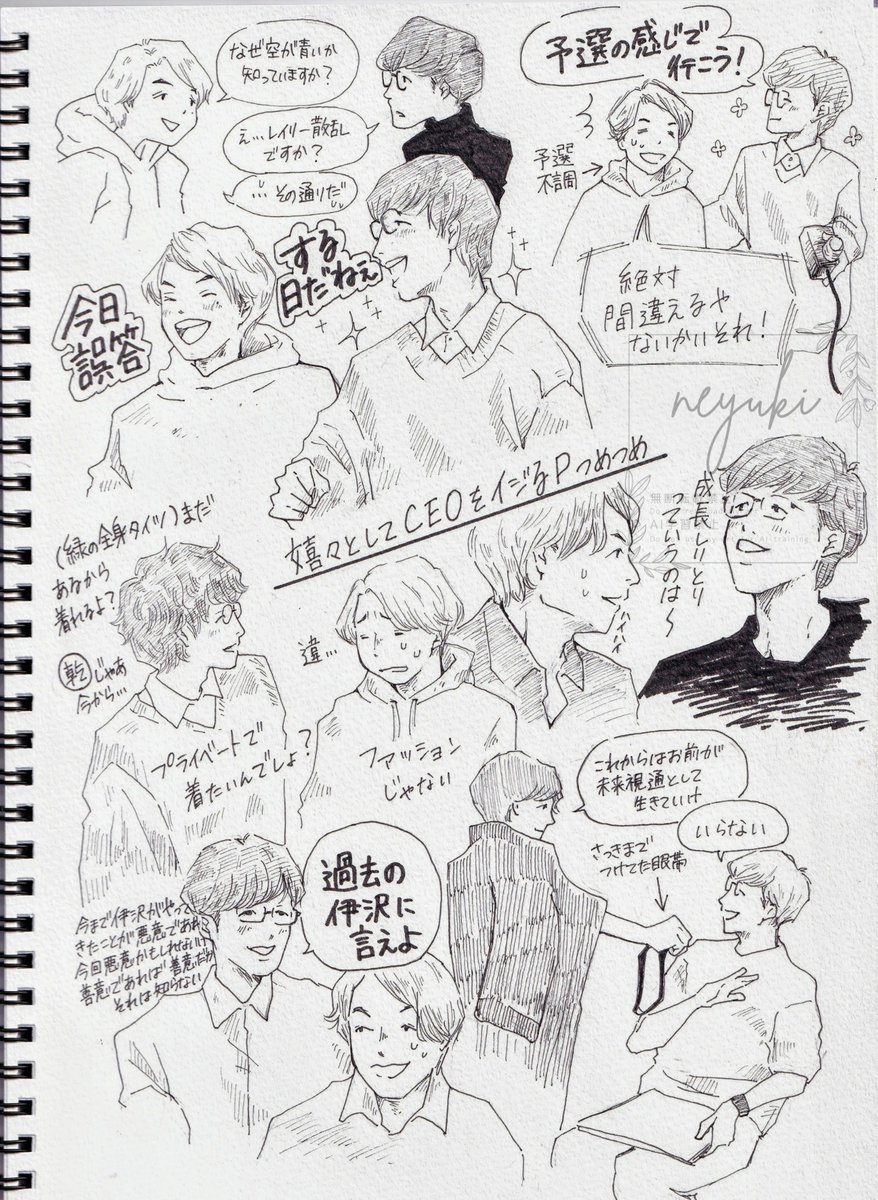 なぜ空が青いか
知っていますか？
え…レイリー散乱
ですか？
…その通りだ
予選の感じで
行こう！
予選
不調
絶対
間違えるや
ないかいそれ！
今日
誤答
する
日だねぇ
neyuki
嬉々としてCEOをイジるPつめつめ
成長
っていうのは〜
ハイハイ
(緑の全身タイツ)まだ
あるから
着れるよ？
乾じゃあ
今から…
プライベートで
着たいんでしょ？
違…
ファッション
じゃない
これからはお前が
未来視通として
生きていけ
いらない
さっきまで
つけてた眼帯
過去の
伊沢に
言えよ
今まで伊沢がやって
きたことが悪意であれ
今回悪意かもしれないけ
善意であれば善意だか
それは知らない